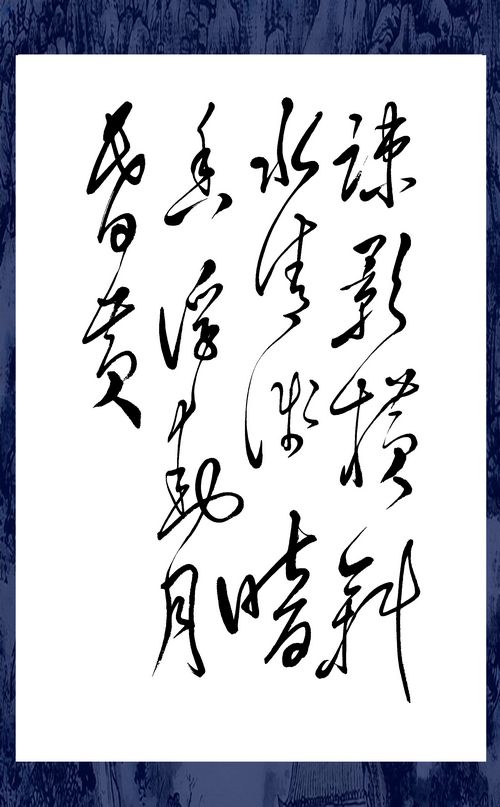 疎影横斜
水清浅暗
香浮動月
昏黄